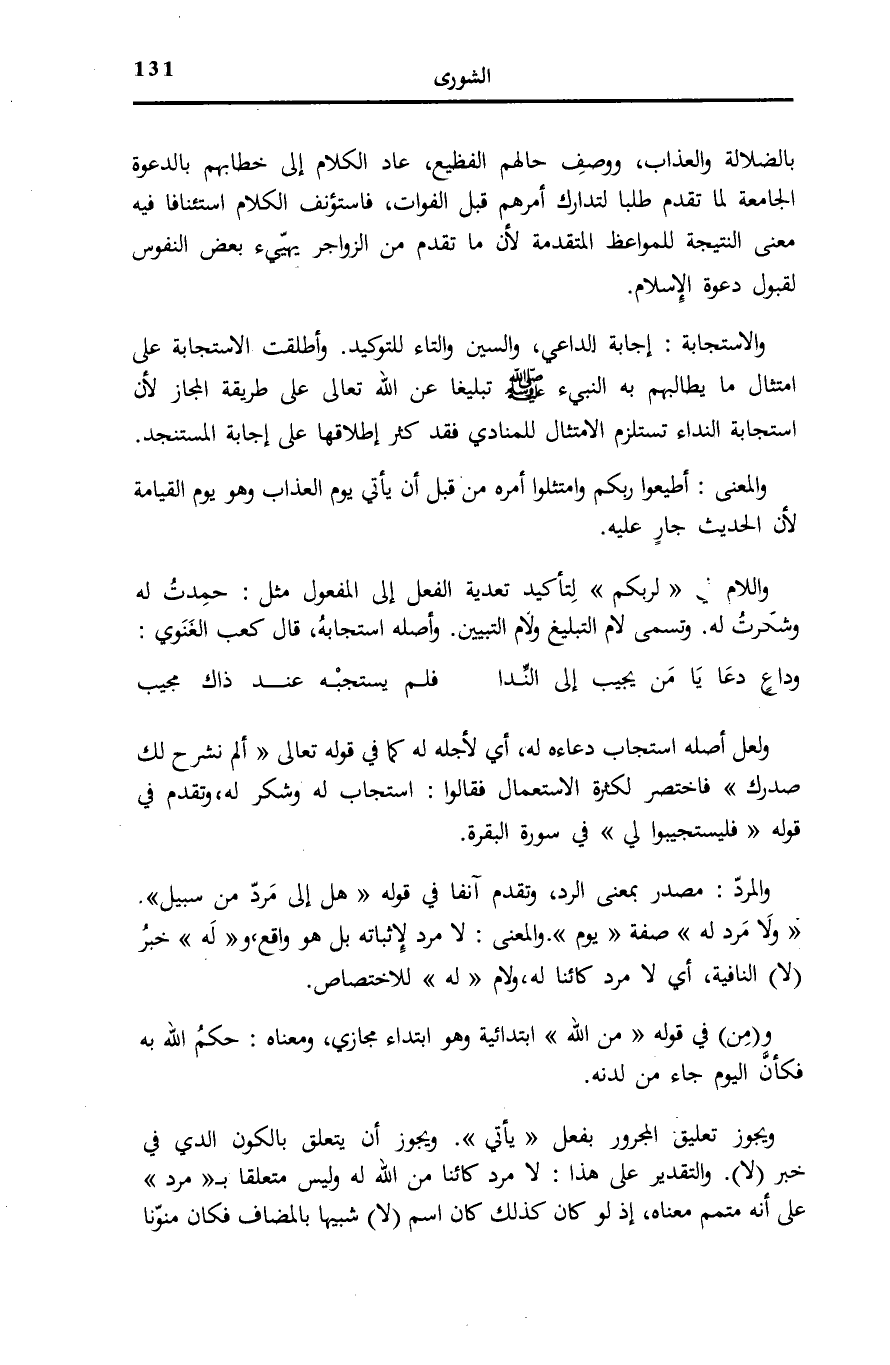 131
الشورى
بالضلالة والعذاب، ووصفِ حالهم الفظيع، عاد الكلام إلى خطابهم بالدعوة
الجامعة لما تقدم طلبا لتدارك أمرهم قبل الفوات، فاستؤنف الكلام استئنافا فيه
معنى النتيجة للمواعظ المتقدمة لأن ما تقدم من الزواجر يهيّيء بعض النفوس
لقبول دعوة الإسلام.
والاستجابة : إجابة الداعي، والسين والتاء للتوكيد. وأطلقت الاستجابة على
امتثال ما يطالبهم به النبيء ﷺ تبليغا عن الله تعالى على طريقة المجاز لأن
استجابة النداء تستلزم الامتثال للمنادي فقد كثر إطلاقها على إجابة المستنجد.
والمعنى : أطيعوا ربكم وامتثلوا أمره من قبل أن يأتي يوم العذاب وهو يوم القيامة
لأن الحديث جارٍ عليه.
واللام في « لربكم » لِتأكيد تعدية الفعل إلى المفعول مثل : حمِدتُ له
وشكَرتُ له. وتسمى لام التبليغ ولَام التبيين. وأصله استجابهُ، قال كعب الغَنَوي :
وداعٍ دعَا يَا مَن يجيب إلى النِّدا فلم يستجبْه عند ذاك مجيب
ولعل أصله استجاب دعاءه له، أي لأجله له كما في قوله تعالى « ألم نشرح لك
صدرك » فاختصر لكثرة الاستعمال فقالوا : استجاب له وشكر له، وتقدم في
قوله « فليستجيبوا لي » في سورة البقرة.
والمردّ : مصدر بمعنى الرد، وتقدم آنفا في قوله « هل إلى مَردّ من سبيل».
« ولَا مَرد له » صفة « يوم ».والمعنى : لا مرد لإثباته بل هو واقع،و« لَه » خبرُ
(لا) النافية، أي لا مرد كائنا له،ولام « له » للاختصاص.
و(مِن) في قوله « من الله » ابتدائية وهو ابتداء مجازي، ومعناه : حكمُ الله به
فكأنَّ اليوم جاء من لدنه.
ويجوز تعليق المجرور بفعل « يأتي ». ويجوز أن يتعلق بالكون الدي في
خبر (لا). والتقدير على هذا : لا مرد كائنا من الله له وليس متعلقا بـ« مرد »
على أنه متمم معناه، إذ لو كان كذلك كان اسم (لا) شبيها بالمضاف فكان منوّنا